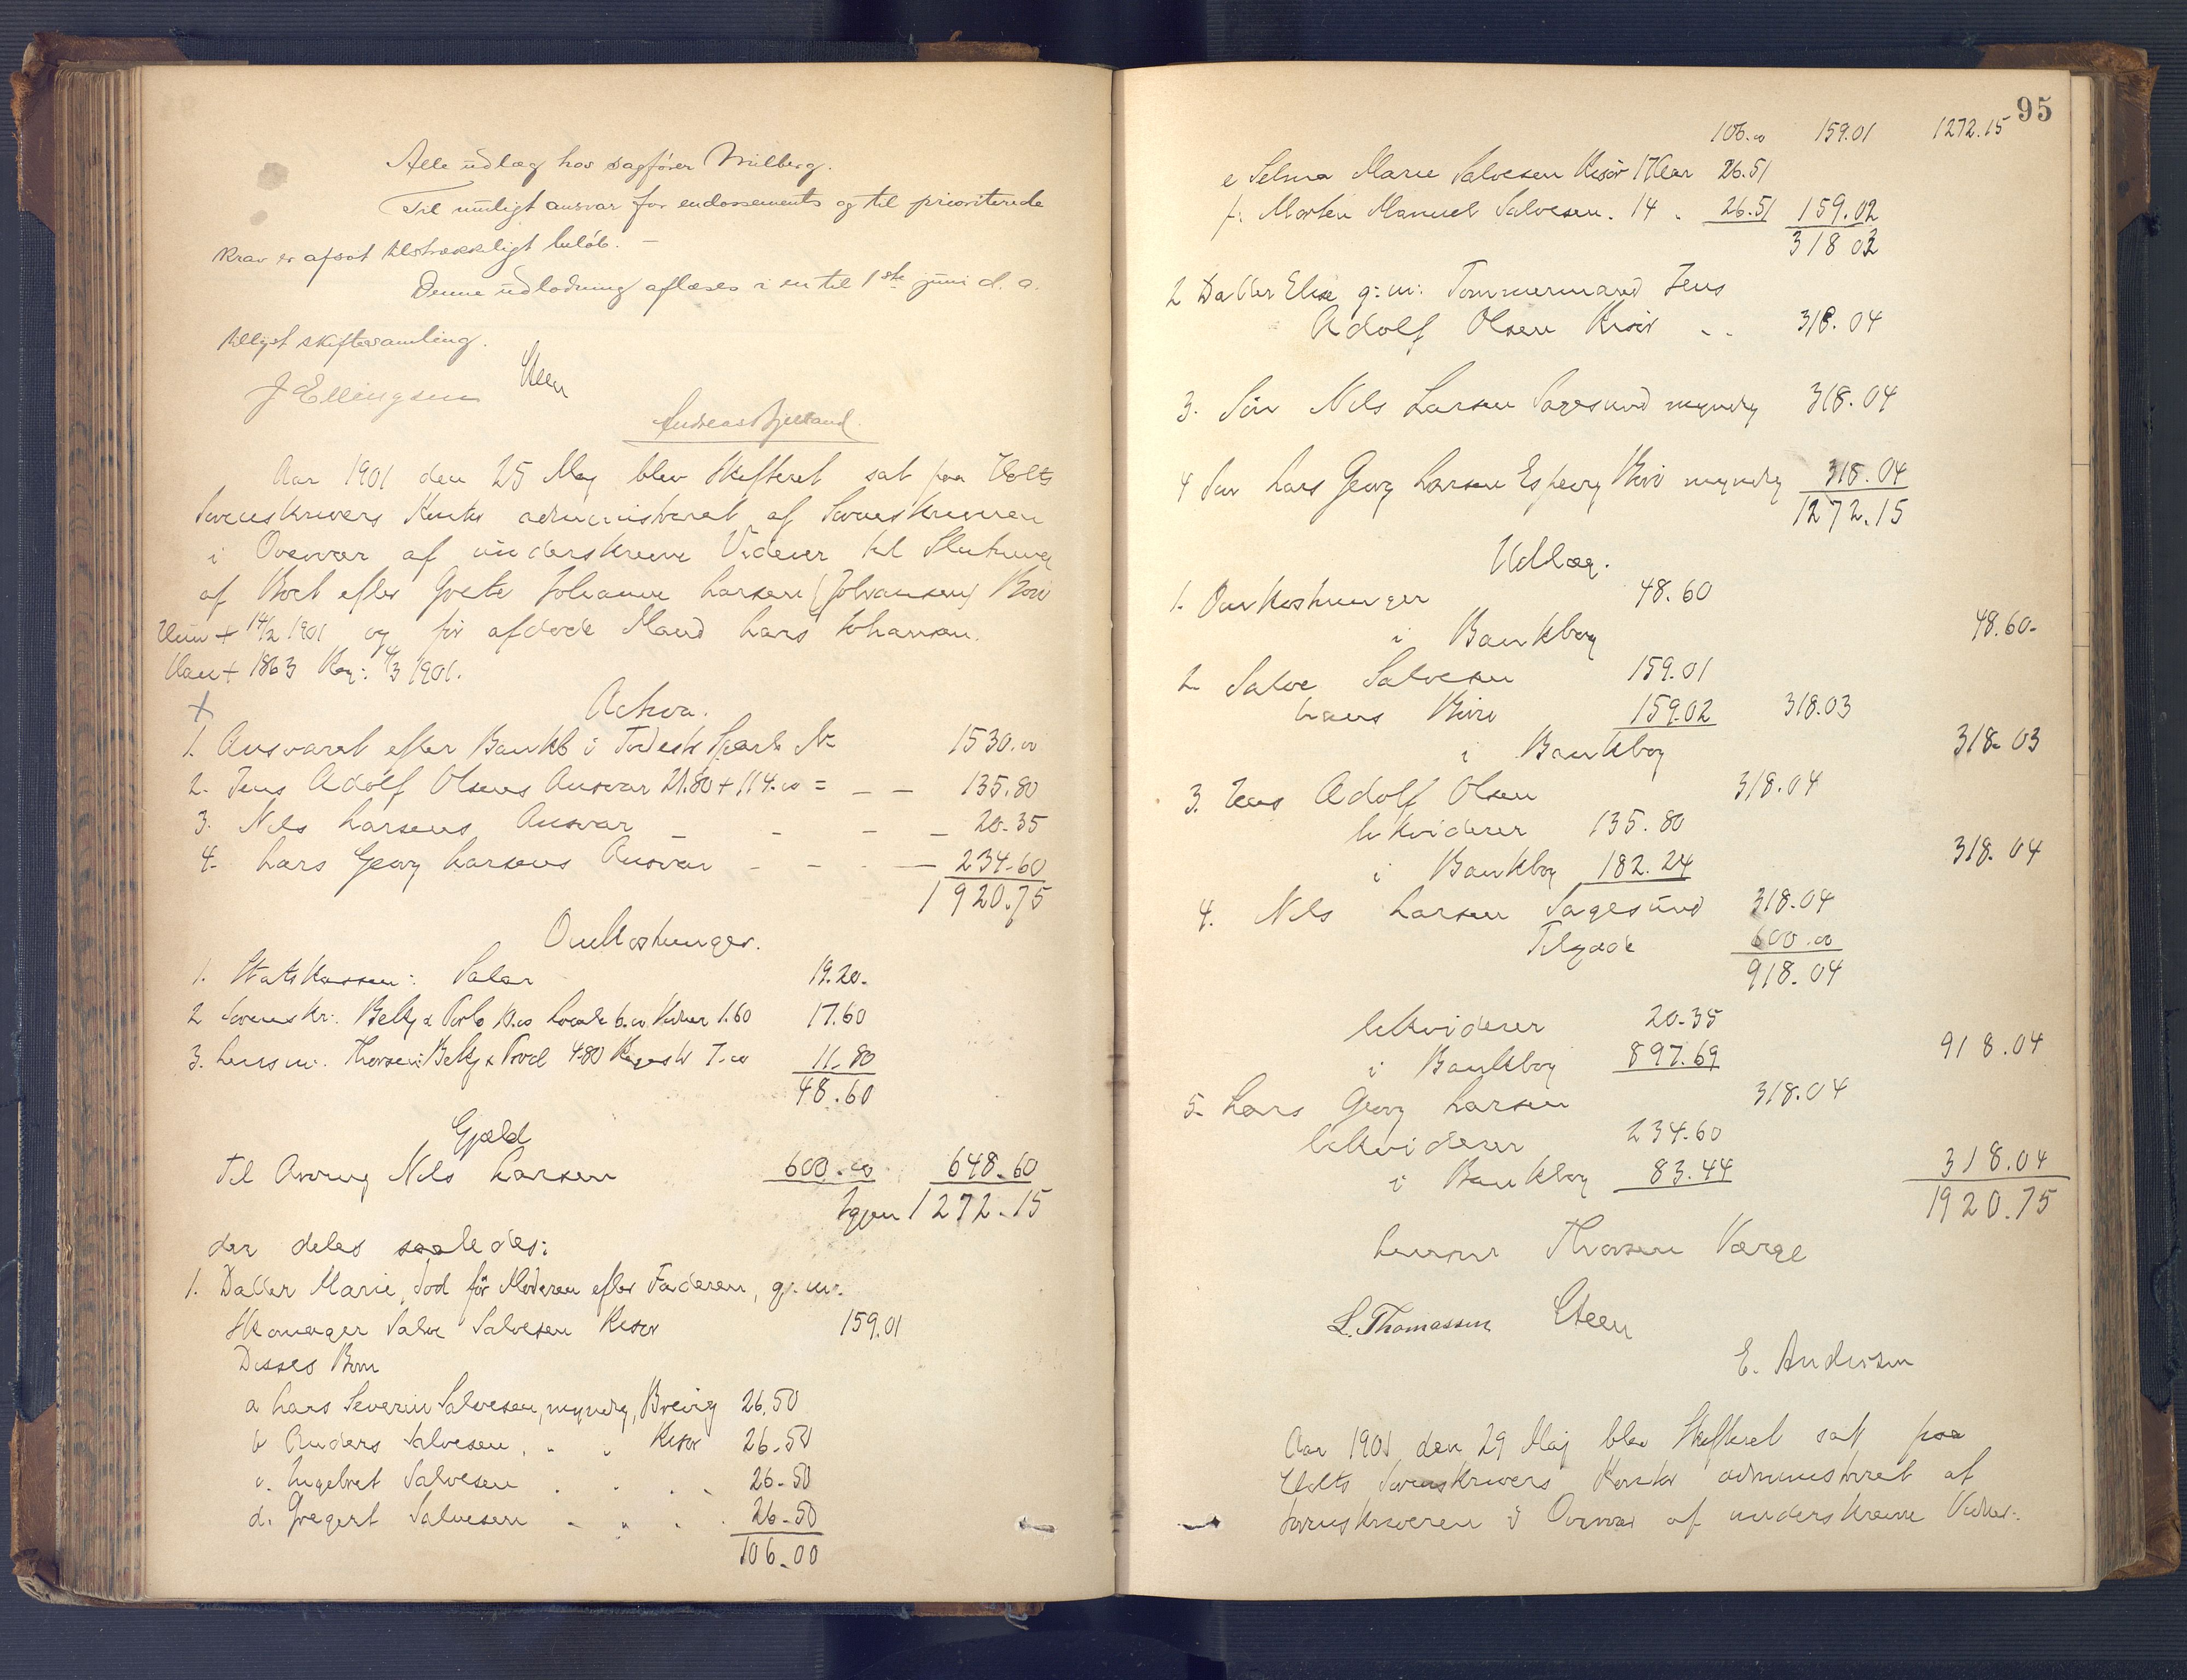 Alle udlæg hos sagfører Milberg.
Til muligt ansvar for endossements og til prioriterede
krav er afsat tilstrækkeligt beløb. —
Denne udlodning aflæses i en til 1ste juni d. a.
tillyst skiftesamling.
J Ellingsen Steen
Andreas Bjelland.
Aar 1901 den 25 Maj blev Skifteret sat paa Holts
Sorenskrivers Kontor administreret af Sorenskriveren
i Overvær af underskrevne Vidner til Slutning
af Boet efter Grete Johanne Larsen (Johansen)
Hun + 14/2 1901 og før afdøde Mand Lars Johansen.
Han + 1863 Reg: 4/3 1901.
+
Activa.
1. Ansvaret efter Bankb i Tvedestr Spareb Nr 1530.00
2. Jens Adolf Olsens Ansvar 21.80 + 114.00 = - - 135.80
3. Nils Larsens Ansvar - - - - 20-35
4. Lars Georg Larsens Ansvar - - - - 234-60
1920.75
Omkostninger.
1. Statskassen: Salær 19.20.
2 Sorenskr: Belkj & Porto 10.00 Locale 6.00 Vidner 1.60 17.60
3. Lensm. Thorsen: Belkj & Prod 4.80 Registr 7.00 11-80
48.60
Gjæld
til Arving Nils Larsen 600.00 648-60
Igjen 1272-15
der deles saaledes:
1. Datter Marie, død før Moderen efter Faderen, g. m.
Skomager Salve Salvesen Risør 159.01
Disses Børn
a Lars Severin Salvesen, myndig, Brevig 26.50
b Anders Salvesen, " " Risør 26-50
c. Ingebret Salvesen . . . . 26-50
d. Gregert Salvesen - " . . 26-50
106-00
95
106.00 159.01 1272.15
e Selma Marie Salvesen Risør 17 Aar 26.51
f. Morten Manuel Salvesen. 14 " 26.51 159.02
318 03
2 Datter Elise g: m: Tømmermand Jens
Adolf Olsen Risør - - 318.04
3. Søn Nils Larsen Sagesund myndig 318.04
4 Søn Lars Georg Larsen Espevig myndig 318.04
1272.15
Udlæg.
1. Omkostninger 48.60
i Bankbog 48.60-
2. Salve Salvesen 159.01
hans Børn 159.02 318.03
i Bankbog 318-03
3. Jens Adolf Olsen 318.04
likviderer 135.80
i Bankbog 182.24 318.04
4. Nils Larsen Sagesund 318.04
Tilgode 600.00
918.04
likviderer 20-35
i Bankbog 897.69 918.04
5. Lars Georg Larsen 318.04
likviderer 234-60
i Bankbog 83.44 318.04
1920.75
Lensm Thorsen Værge
L. Thomassen Steen
E. Andersen
Aar 1901 den 29 Maj blev Skifteret sat paa
Holts Sorenskrivers Kontor administreret af
Sorenskriveren i Overvær af underskrevne Vidner.